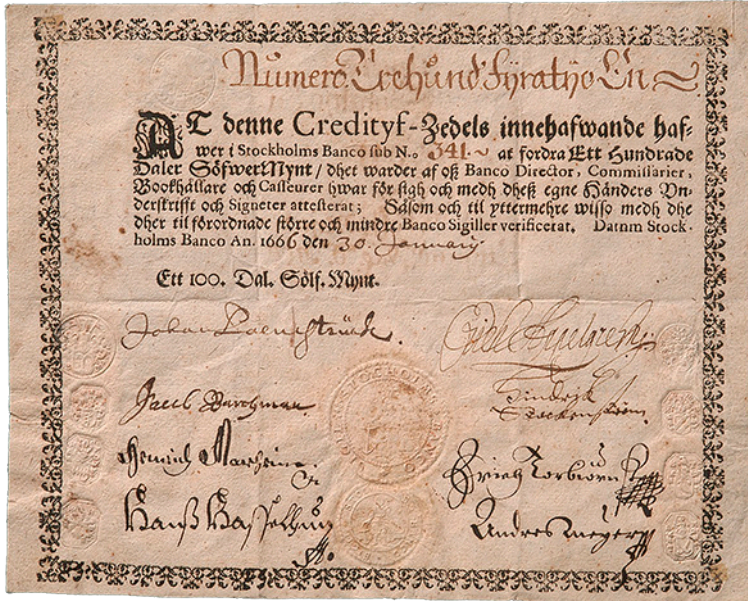 Numero Trehund' Fyratijo En
AT denne Credityf-Zedels innehafwande haf-
wer i Stockholms Banco sub N.o 341. at fordra Ett Hundrade
Daler SöfwerMynt / dhet warder af oß Banco Director, Commissarier,
Bookhållare och Casseurer hwar för sigh och medh dheß egne Händers Vn-
derskrifft och Signeter attesterat; Såsom och til yttermehre wisso medh dhe
dher til förordnade större och mindre Banco Sigiller verificerat. Datum Stock-
holms Banco An. 1666 den 30. January.
Ett 100. Dal. Sölf. Mynt.
Johan
Jacob
Hindrik
Stockenström
Henrich
Hanß
Andres Meyer